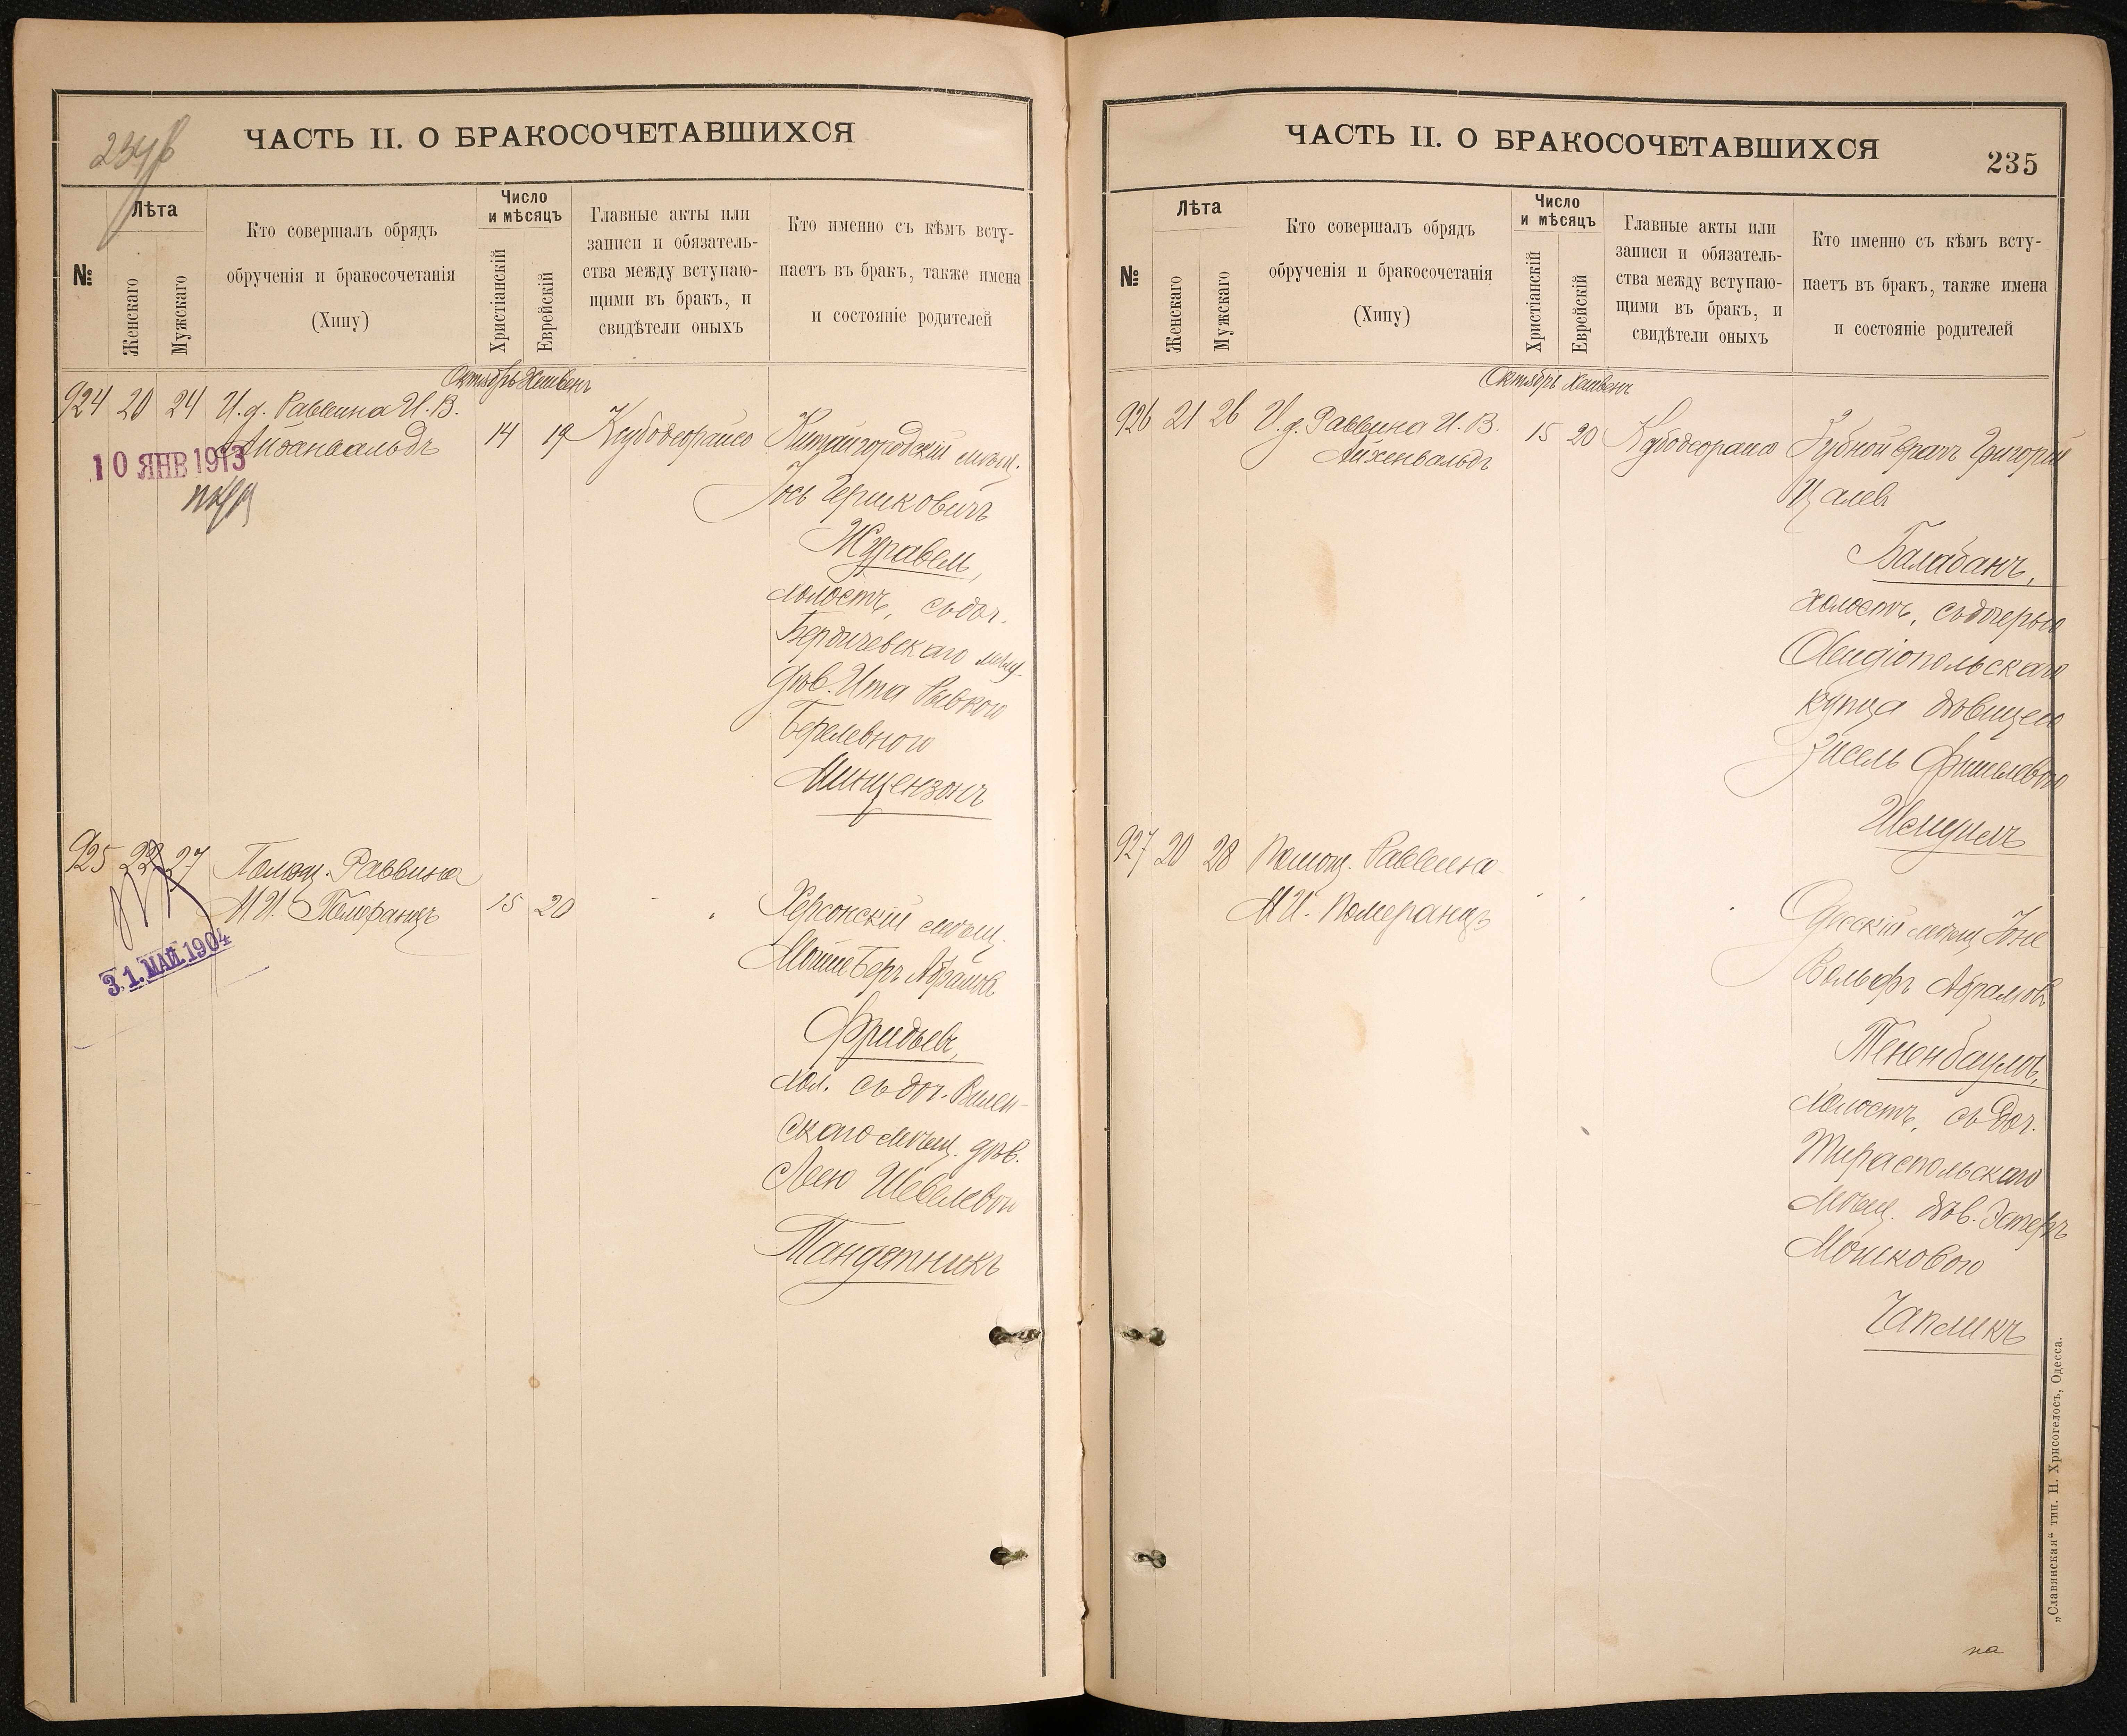 234б
ЧАСТЬ II. О БРАКОСОЧЕТАВШИХСЯ
№
Лѣта
Женскаго
Мужскаго
Кто совершалъ обрядъ
обрученія и бракосочетанія
(Хипу)
Число
и мѣсяцъ
Христіанскій
Еврейскій
Главные акты или
записи и обязатель-
ства между вступаю-
щими въ бракъ, и
свидѣтели оныхъ
Кто именно съ кѣмъ всту-
паетъ въ бракъ, также имена
и состояніе родителей
Октябрь Хешвенъ
924 20 24 И.д. Раввина И.В.
Айзенвальдъ
14 19 Ксубодеорайсо
Китайгородскій мѣщ.
Іось Гершковичъ
Журавель,
холостъ, съ доч.
Бердичевскаго мѣщ.
дѣв. Ита Рывкою
Берелевною
Минцензонъ
10 ЯНВ 1913
925 22 27 Помощ. Раввина
М.И. Померанцъ
15 20 - "
Херсонскій мѣщ.
Мойше Беръ Абрамов
Фридьевъ,
хол. съ доч. Вилен-
скаго мѣщ. дѣв.
Леею Шевелевой
Тандетникъ
31. МАЙ. 1904
ЧАСТЬ II. О БРАКОСОЧЕТАВШИХСЯ
235
№
Лѣта
Женскаго
Мужскаго
Кто совершалъ обрядъ
обрученія и бракосочетанія
(Хипу)
Число
и мѣсяцъ
Христіанскій
Еврейскій
Главные акты или
записи и обязатель-
ства между вступаю-
щими въ бракъ, и
свидѣтели оныхъ
Кто именно съ кѣмъ всту-
паетъ въ бракъ, также имена
и состояніе родителей
Октябрь Хешвенъ
926 21 26 И.д. Раввина И.В.
Айхенвальдъ
15 20 Ксубодеорайсо
Зубной врачъ Григорій
Цалев
Балабанъ,
холостъ, съ дочерью
Овидіопольскаго
купца дѣвицею
Зисель Фишелевою
927 20 28 Помощ. Раввина
М.И. Померанцъ
" " "
Одесскій мѣщ. Іоне
Вольфъ Абрамов
Тененбаумъ,
холостъ, съ доч.
Тираспольскаго
мѣщ. дѣв. Эстеръ
Мошковою
Чапликъ
на
„Славянская" тип. Н. Хрисогелосъ, Одесса.